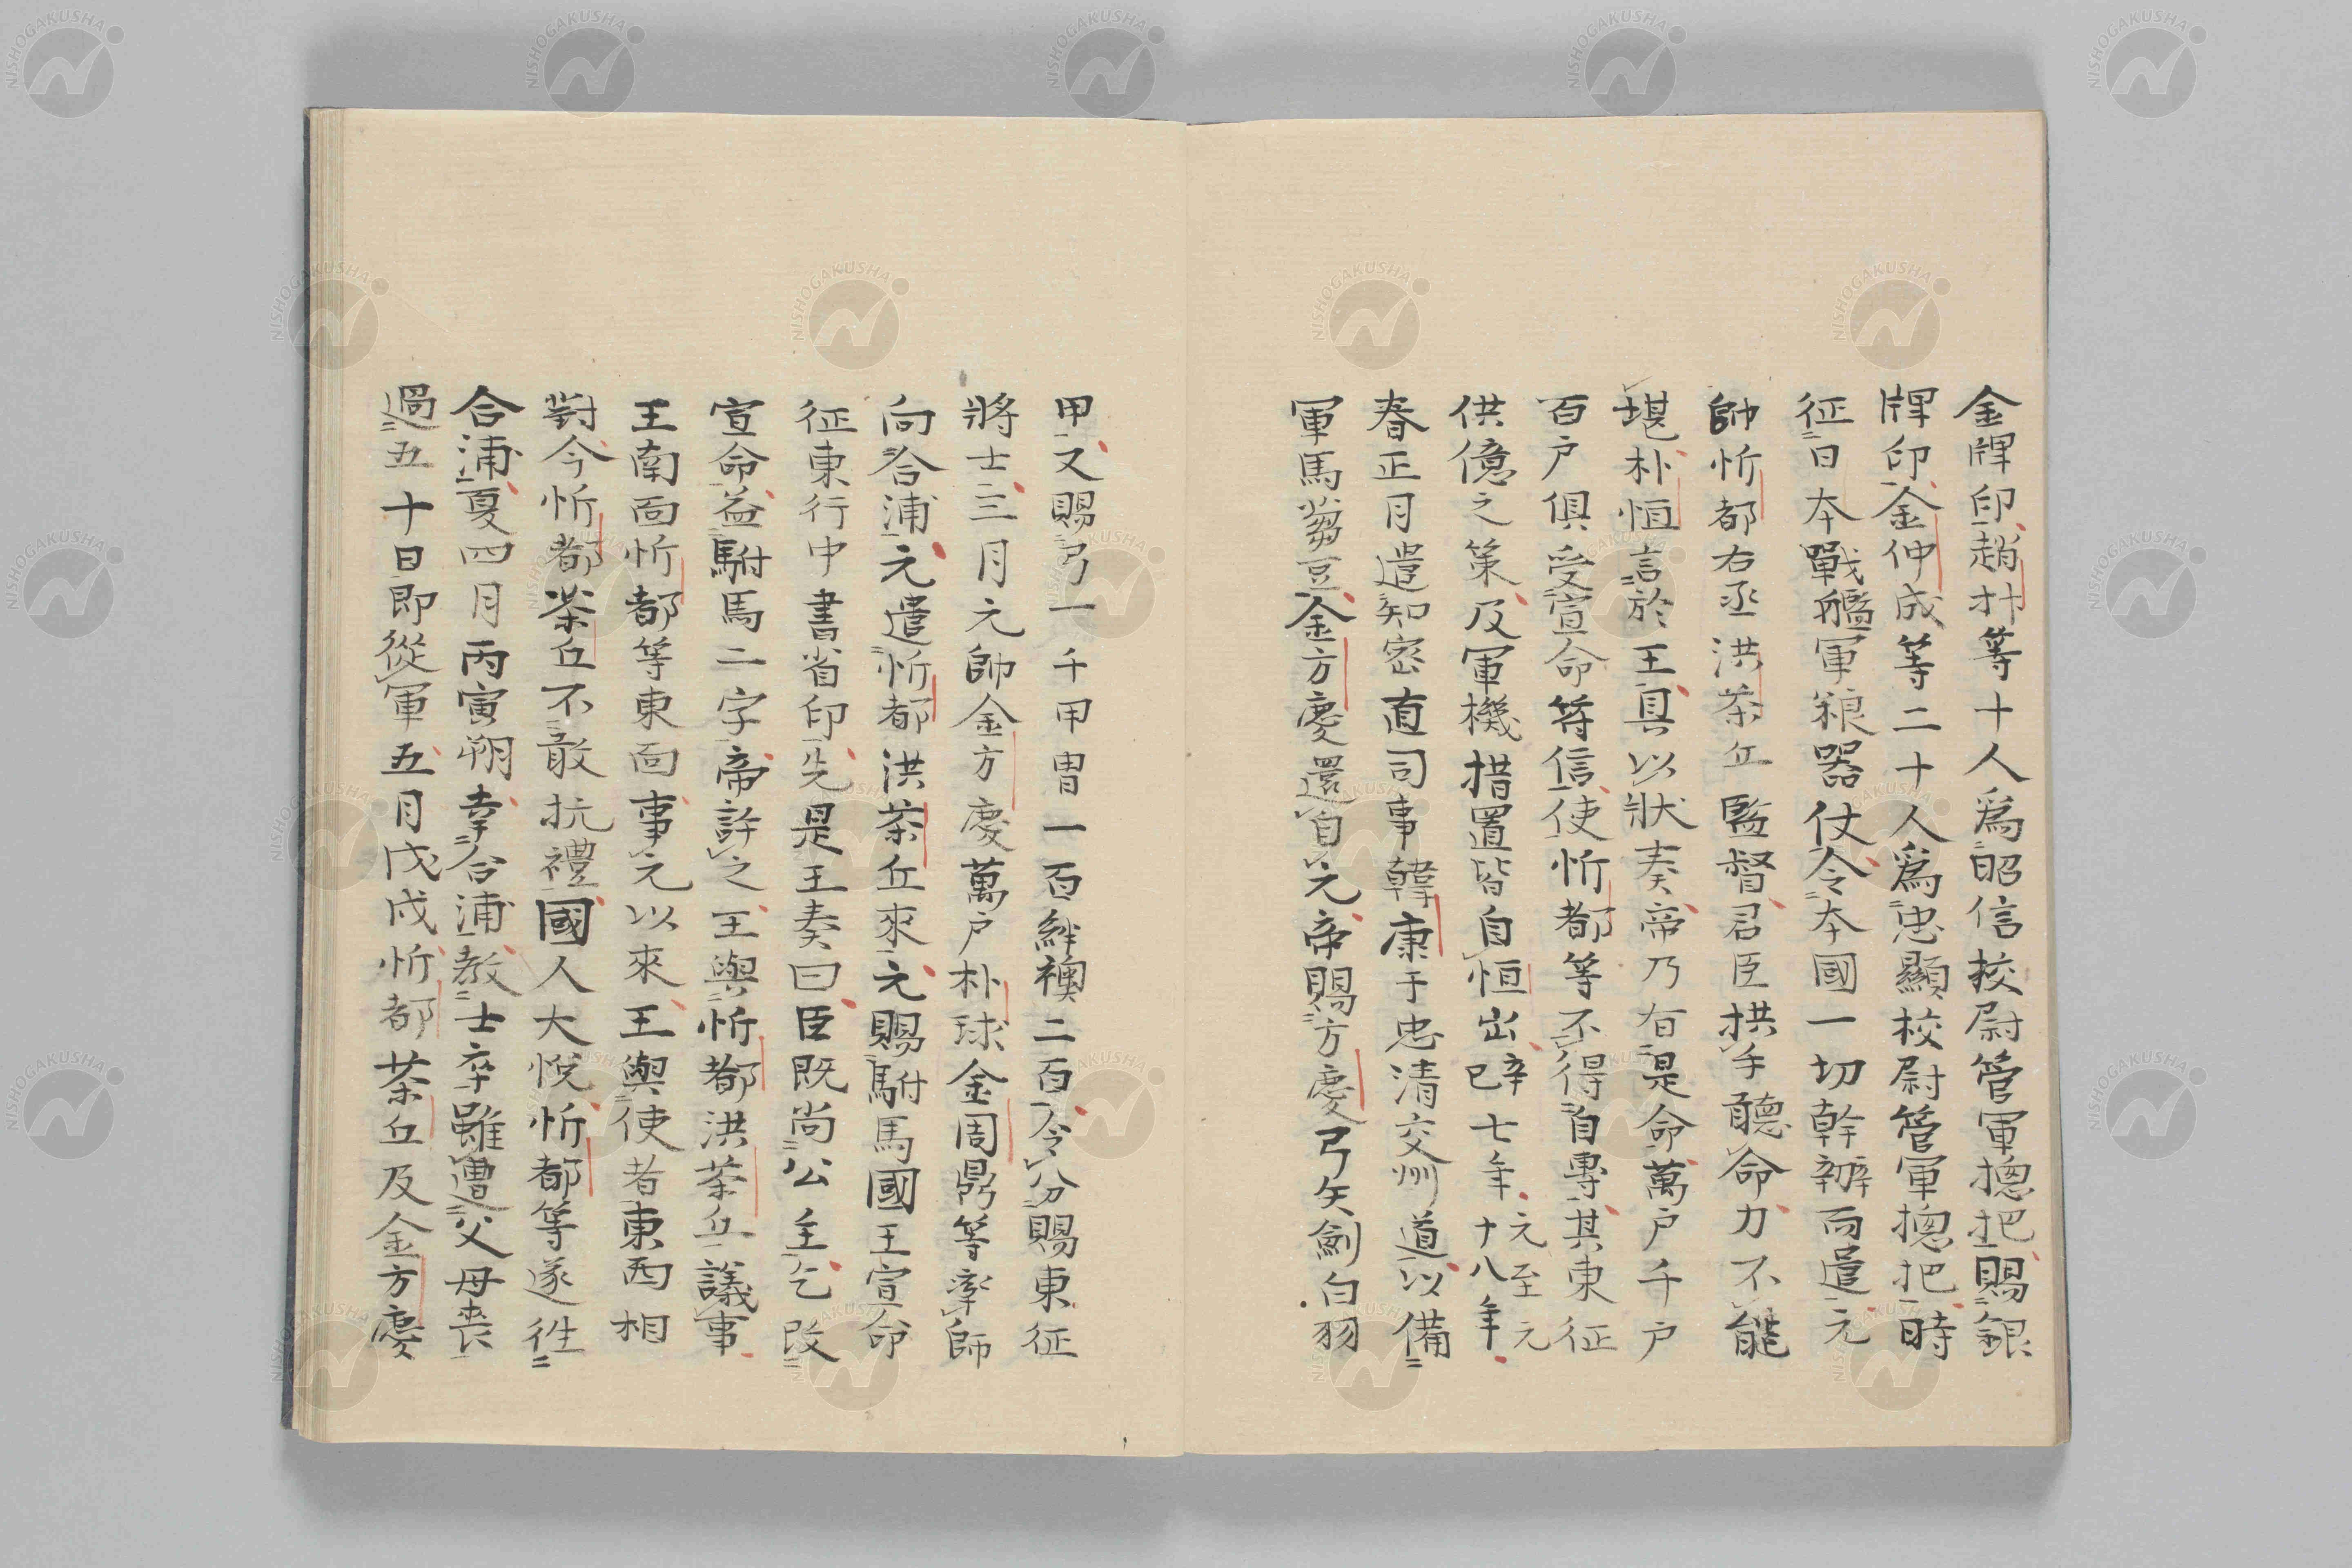 金牌印趙抃等十人爲昭信校尉管軍摠把賜銀
牌印金仲成等二十人爲忠顯校尉管軍摠把時
征日本戰艦軍粮器仗令本國一切幹辦而遣元
帥忻都右丞洪茶丘監督君臣拱手聽命力不能
堪朴恒言於王具以狀奏帝乃有是命萬户千户
百户俱受宣命符信使忻都等不得自專其東征
供億之策及軍機措置皆自恒出辛巳七年元至元十八年
春正月遣知密直司事韓康于忠清交州道以備
軍馬蒭豆金方慶還自元帝賜方慶弓矢劍白羽
甲又賜弓一千甲胄一百絆襖二百令分賜東征
將士三月元帥金方慶萬户朴球金周鼎等率師
向合浦元遣忻都洪茶丘來元賜駙馬國王宣命
征東行中書省印先是王奏曰臣既尚公主乞改
宣命益駙馬二字帝許之王與忻都洪茶丘議事
王南面忻都等東面事元以來王與使者東西相
對今忻都茶丘不敢抗禮國人大悅忻都等遂徃
合浦夏四月丙寅朔幸合浦教士卒雖遭父母喪
過五十日即從軍五月戊戌忻都茶丘及金方慶
NISHOGAKUSHA